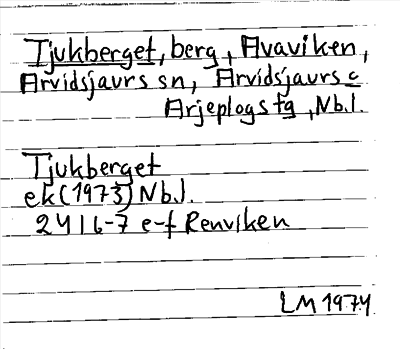 Tjukberget, berg, Avaviken,
Arvidsjaurs sn, Arvidsjaurs o
Arjeplogs tg, Nb.l.
Tjukberget
ek (1973) Nb.l.
24 I 6-7 e-f Renviken
LM 1974